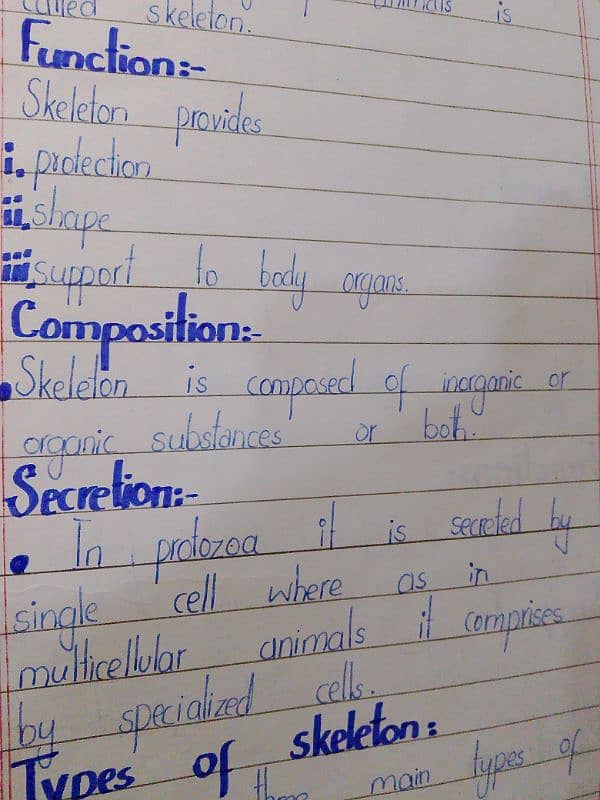 called skeleton. animals is
Function:-
Skeleton provides
i. protection
ii. shape
iii. support to body organs.
Composition:-
• Skeleton is composed of inorganic or
organic substances or both.
Secretion:-
• In protozoa it is secreted by
single cell where as in
multicellular animals it comprises
by specialized cells.
Types of skeleton:
three main types of